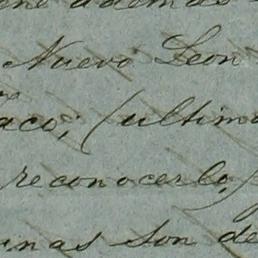 además
Nuevo Leon
aco; (ultimo
reconocerlo,)
inas son de